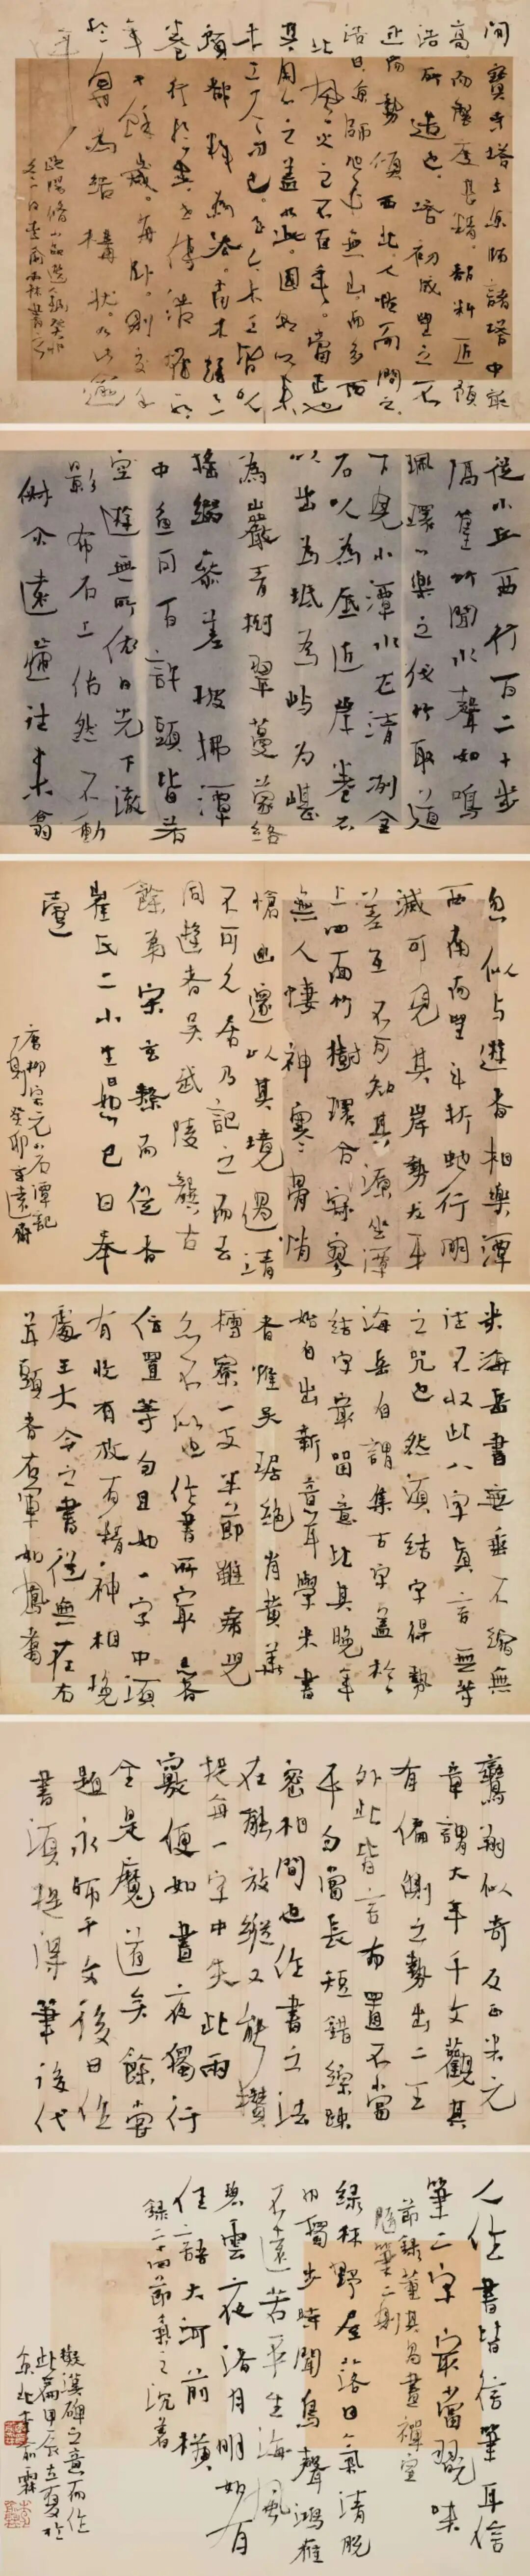 開寶寺塔在京師諸塔中最
高而製度甚精都料匠預
浩所造也塔初成望之不
正而勢傾西北人怪而問之
浩曰京師地平無山而多西
北風吹之不百年當正也
其用心之蓋如此國朝以來
木工一人而已至今木工皆以
預都料為法有木經三
卷行於世世傳浩惟一女
年十餘歲每臥則交手
於胸為結構狀如此逾
年
從小丘西行百二十步
隔篁竹聞水聲如鳴
珮環心樂之伐竹取道
下見小潭水尤清冽全
石以為底近岸卷石
以出為坻為嶼為嵁
為巖青樹翠蔓蒙絡
搖綴參差披拂潭
中魚可百許頭皆若
空遊無所依日光下澈
影布石上佁然不動
俶尒遠逝往來翕
忽似與遊者相樂潭
西南而望斗折蛇行明
滅可見其岸勢犬牙
差互不可知其源坐潭
上四面竹樹環合寂寥
無人悽神寒骨悄
愴幽邃以其境過清
不可久居乃記之而去
同遊者吳武陵龔古
餘弟宗玄隸而從者
崔氏二小生曰恕己曰奉
壹
唐柳宗元小石潭記
米海岳書無垂不縮無
往不收此八字真言無等
之咒也然須結字得勢
海岳自謂集古字蓋於
結字最留意比其晚年
始自出新意耳學米書
者惟吳琚絕肖黃華
樗寮一支半節雖虎兒
亦不似也作書所最忌者
位置等勻且如一字中須
有收有放有精神相挽
處王大令之書從無左右
並頭者右軍如鳳翥
鸞翔似奇反正米元
章謂大年千文觀其
有偏側之勢出二王
外此皆言布置不當
平勻當長短錯綜疎
密相間也作書之法
在能放縱又能攢
捉每一字中失此兩
竅便如晝夜獨行
全是魔道矣餘嘗
題永師千文後曰作
書須提得筆後代
人作書皆信筆耳信
筆二字最當玩味
節錄董其昌畫禪室
隨筆二則
綠林野屋落日氣清脫
巾獨步時聞鳥聲鴻雁
不遠若平生海風
碧雲夜渚月明如有
佳語大河前橫
錄二十四節氣之沈著
擬漢碑之意而作
此篇甲辰立夏於